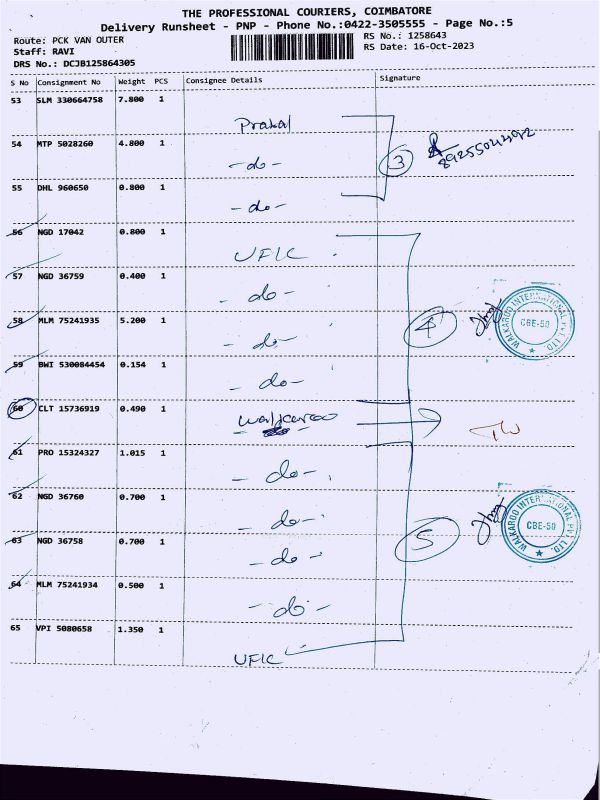 THE PROFESSIONAL COURIERS, COIMBATORE
Delivery Runsheet - PNP - Phone No.:0422-3505555 - Page No.:5
Route: PCK VAN OUTER
RS No.: 1258643
Staff: RAVI
RS Date: 16-Oct-2023
DRS No.: DCJB125864305
S No Consignment No Weight PCS Consignee Details Signature
53 SLM 330664758 7.800 1
54 MTP 5028260 4.800 1
- do -
3
55 DHL 960650 0.800 1
- do -
56 NGD 17042 0.800 1
UFIC
57 NGD 36759 0.400 1
- do -
58 MLM 75241935 5.200 1
- do -
4
WALKAROO INTERNATIONAL PVT LTD
CBE-50
59 BWI 530084454 0.154 1
- do -
60 CLT 15736919 0.490 1
walkaroo
61 PRO 15324327 1.015 1
- do -
62 NGD 36760 0.700 1
- do -
5
WALKAROO INTERNATIONAL PVT LTD
CBE-50
63 NGD 36758 0.700 1
- do -
64 MLM 75241934 0.500 1
- do -
65 VPI 5080658 1.350 1
UFIC